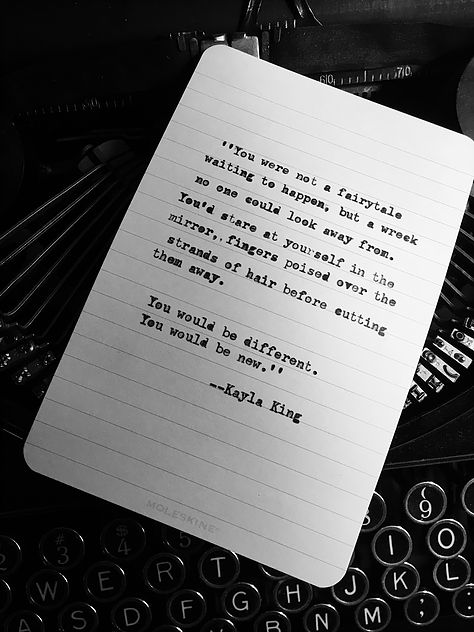 60 70
"You were not a fairytale
waiting to happen, but a wreck
no one could look away from.
You'd stare at yourself in the
mirror, fingers poised over the
strands of hair before cutting
them away.
You would be different.
You would be new."
--Kayla King
MOLESKINE
# 3 $ 4 5 9
W E R T I O
S D F G H J K L
B N M ; :